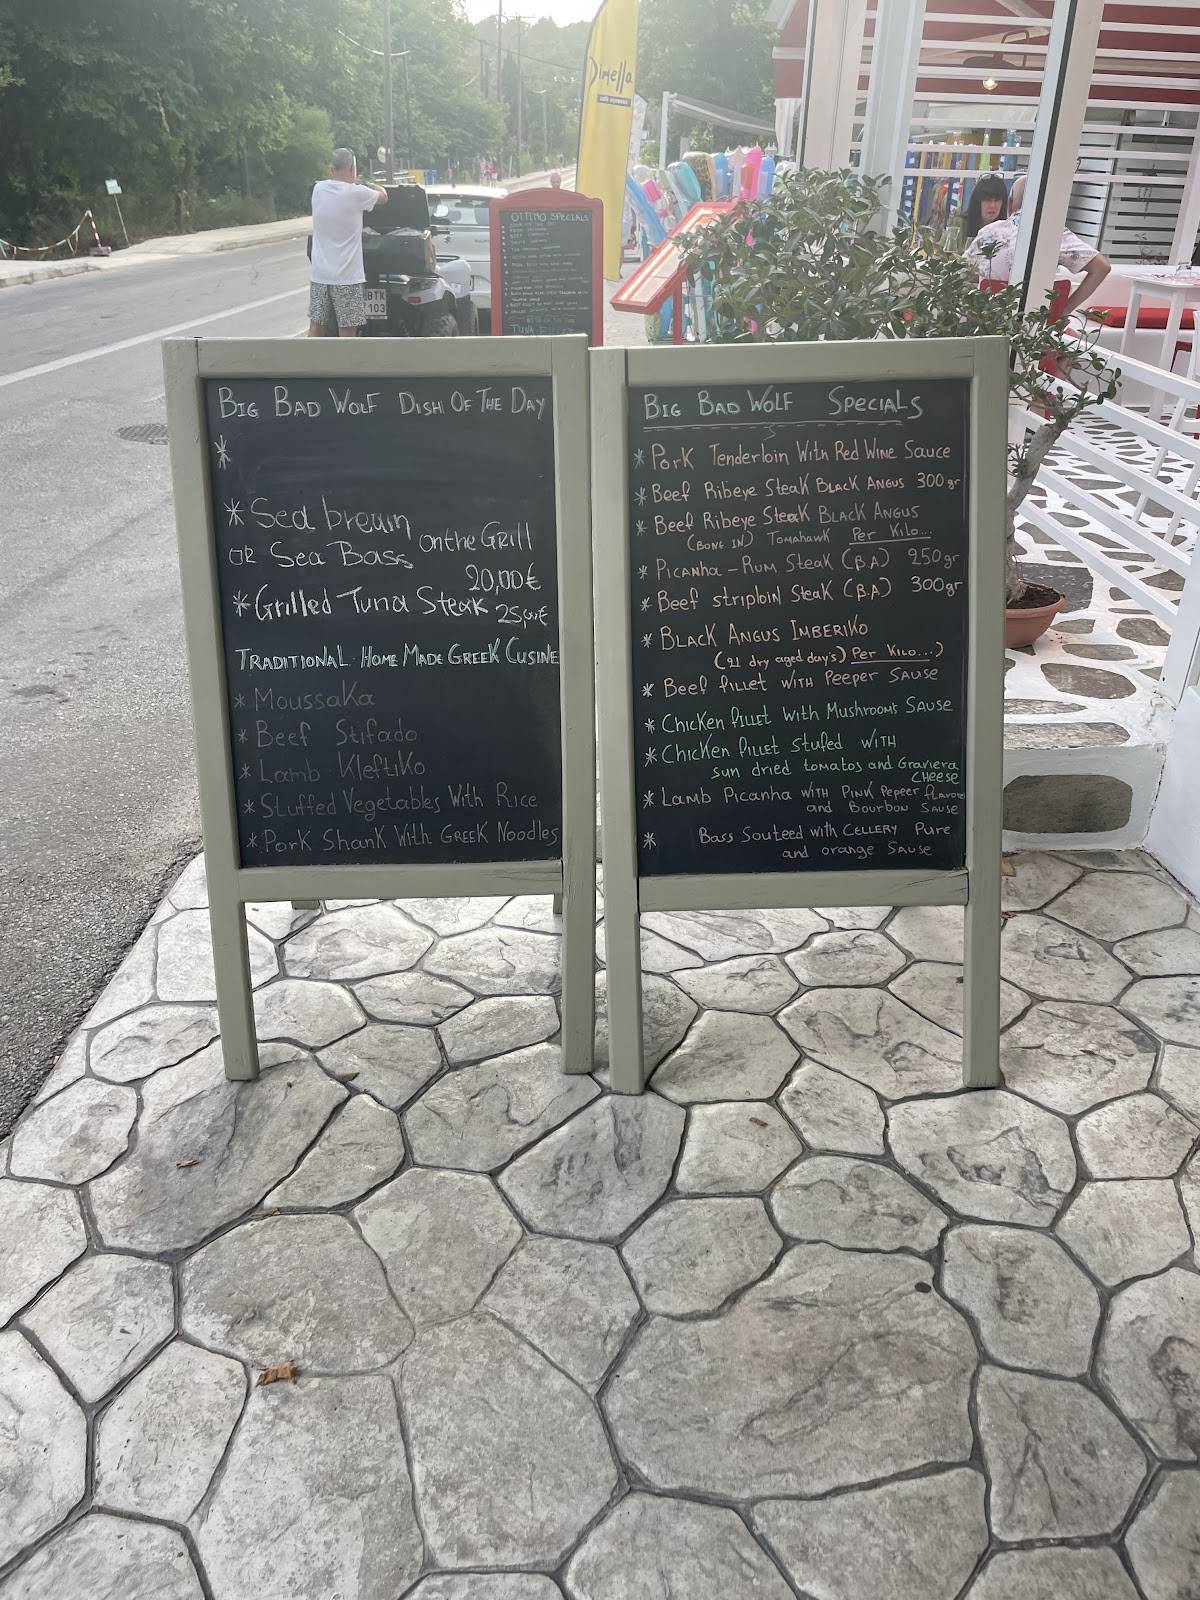 Dimella
OTTIMO SPECIALS
TUNA
BTK
103
BIG BAD WOLF DISH OF THE DAY
*
* Sea bream
OR Sea Bass on the Grill
20,00€
* Grilled Tuna Steak 25,00€
TRADITIONAL HOME MADE GREEK CUSINE
* Moussaka
* Beef Stifado
* Lamb Kleftiko
* Stuffed Vegetables With Rice
* Pork Shank With GREEK Noodles
BIG BAD WOLF SPECIALS
* Pork Tenderloin With Red Wine Sauce
* Beef Ribeye Steak BLACK ANGUS 300gr
* Beef Ribeye Steak BLACK ANGUS
(BONE IN) TOMAHAWK Per Kilo...
* PICANha - RUM STEAK (B.A) 250gr
* Beef striploin Steak (B.A) 300gr
* BLACK ANGUS IMBERIKO
(21 dry aged day's) Per Kilo...)
* Beef fillet WITH Peeper SAUSE
* Chicken fillet With Mushrooms SAUSE
* Chicken fillet stufed WITH
sun dried tomatos and Graviera
CHEESE
* Lamb Picanha WITH PINK Pepeer flavor
and Bourbon SAUSE
* Bass Souteed with CELLERY Pure
and orange SAUSE